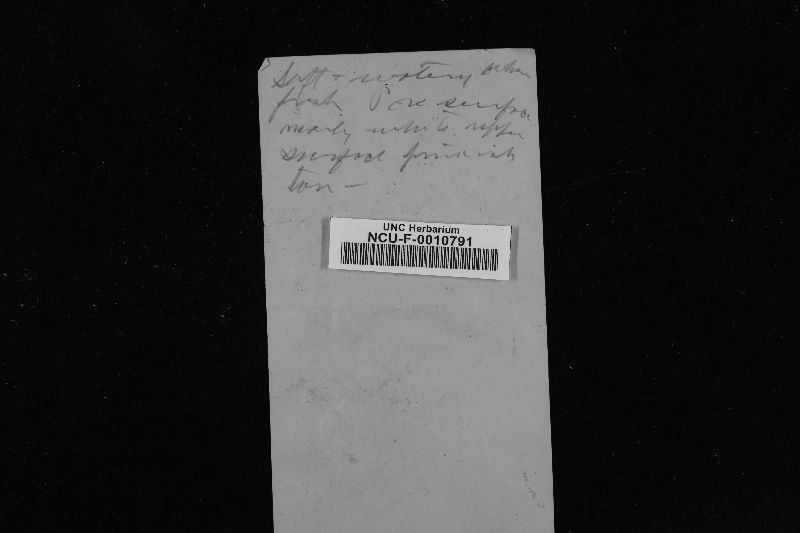 Soft + watery when
fresh Pore surface
nearly white. upper
surface pinkish
tan –
UNC Herbarium
NCU-F-0010791